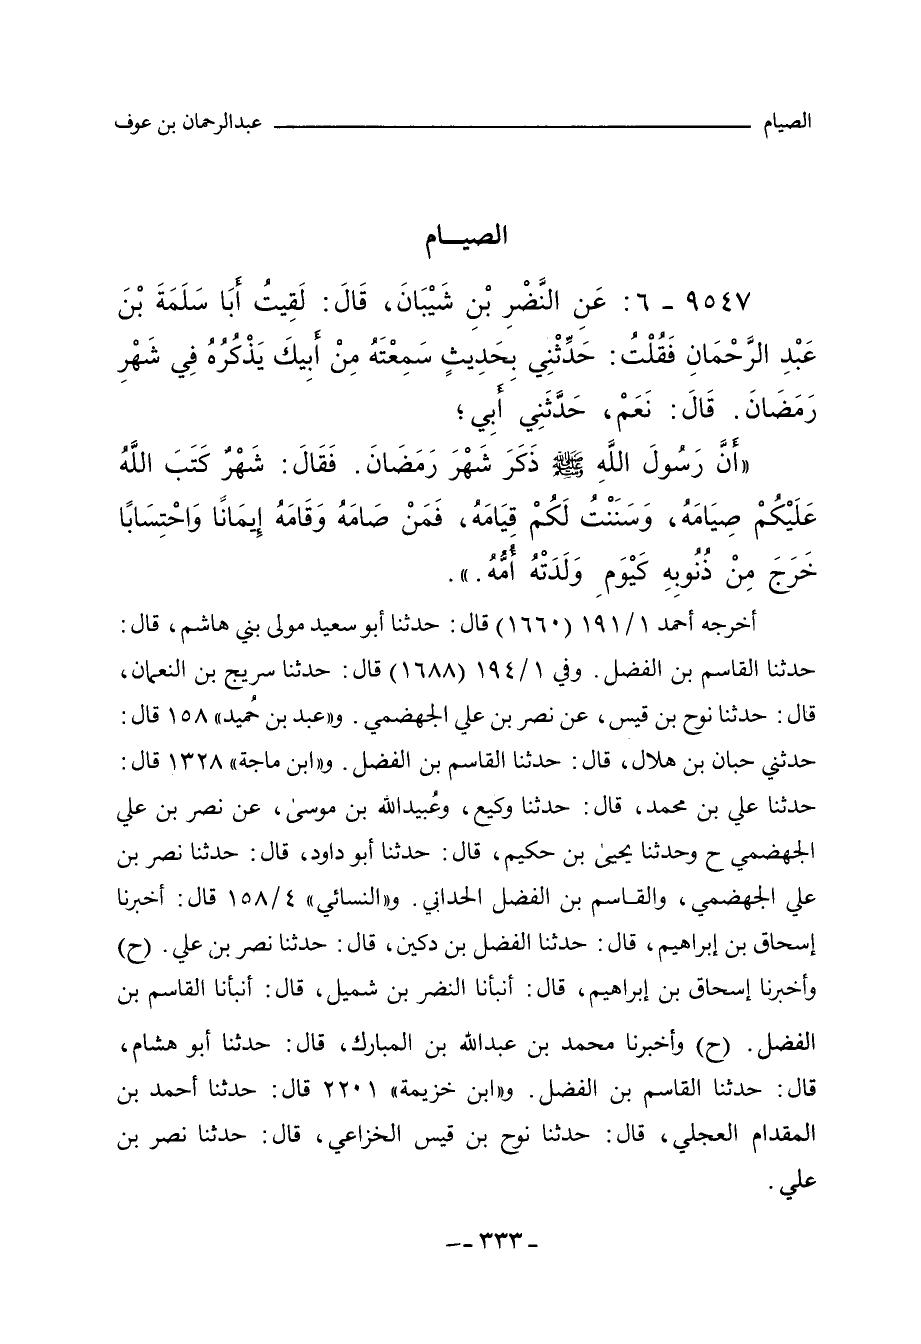 الصيام ــــــــــــــــــــ عبدالرحمان بن عوف
الصيـــام
٩٥٤٧ ـ ٦: عَنِ النَّضْرِ بْنِ شَيْبَانَ، قَالَ: لَقِيتُ أَبَا سَلَمَةَ بْنَ
عَبْدِ الرَّحْمَانِ فَقُلْتُ: حَدِّثْنِي بِحَدِيثٍ سَمِعْتَهُ مِنْ أَبِيكَ يَذْكُرُهُ فِي شَهْرِ
رَمَضَانَ. قَالَ: نَعَمْ، حَدَّثَنِي أَبِي؛
«أَنَّ رَسُولَ اللَّهِ ﷺ ذَكَرَ شَهْرَ رَمَضَانَ. فَقَالَ: شَهْرٌ كَتَبَ اللَّهُ
عَلَيْكُمْ صِيَامَهُ، وَسَنَنْتُ لَكُمْ قِيَامَهُ، فَمَنْ صَامَهُ وَقَامَهُ إِيمَانًا وَاحْتِسَابًا
خَرَجَ مِنْ ذُنُوبِهِ كَيْوَمِ وَلَدَتْهُ أُمُّهُ.».
أخرجه أحمد ١٩١/١ (١٦٦٠) قال: حدثنا أبو سعيد مولى بني هاشم، قال:
حدثنا القاسم بن الفضل. وفي ١٩٤/١ (١٦٨٨) قال: حدثنا سريج بن النعمان،
قال: حدثنا نوح بن قيس، عن نصر بن علي الجهضمي. و«عبد بن حُميد» ١٥٨ قال:
حدثني حبان بن هلال، قال: حدثنا القاسم بن الفضل. و«ابن ماجة» ١٣٢٨ قال:
حدثنا علي بن محمد، قال: حدثنا وكيع، وعُبيدالله بن موسىٰ، عن نصر بن علي
الجهضمي ح وحدثنا يحيىٰ بن حكيم، قال: حدثنا أبو داود، قال: حدثنا نصر بن
علي الجهضمي، والقـاسم بن الفضل الحداني. و«النسائي» ١٥٨/٤ قال: أخبرنا
إسحاق بن إبراهيم، قال: حدثنا الفضل بن دكين، قال: حدثنا نصر بن علي. (ح)
وأخبرنا إسحاق بن إبراهيم، قال: أنبأنا النضر بن شميل، قال: أنبأنا القاسم بن
الفضل. (ح) وأخبرنا محمد بن عبدالله بن المبارك، قال: حدثنا أبو هشام،
قال: حدثنا القاسم بن الفضل. و«ابن خزيمة» ٢٢٠١ قال: حدثنا أحمد بن
المقدام العجلي، قال: حدثنا نوح بن قيس الخزاعي، قال: حدثنا نصر بن
علي.
ـ ٣٣٣ ـ